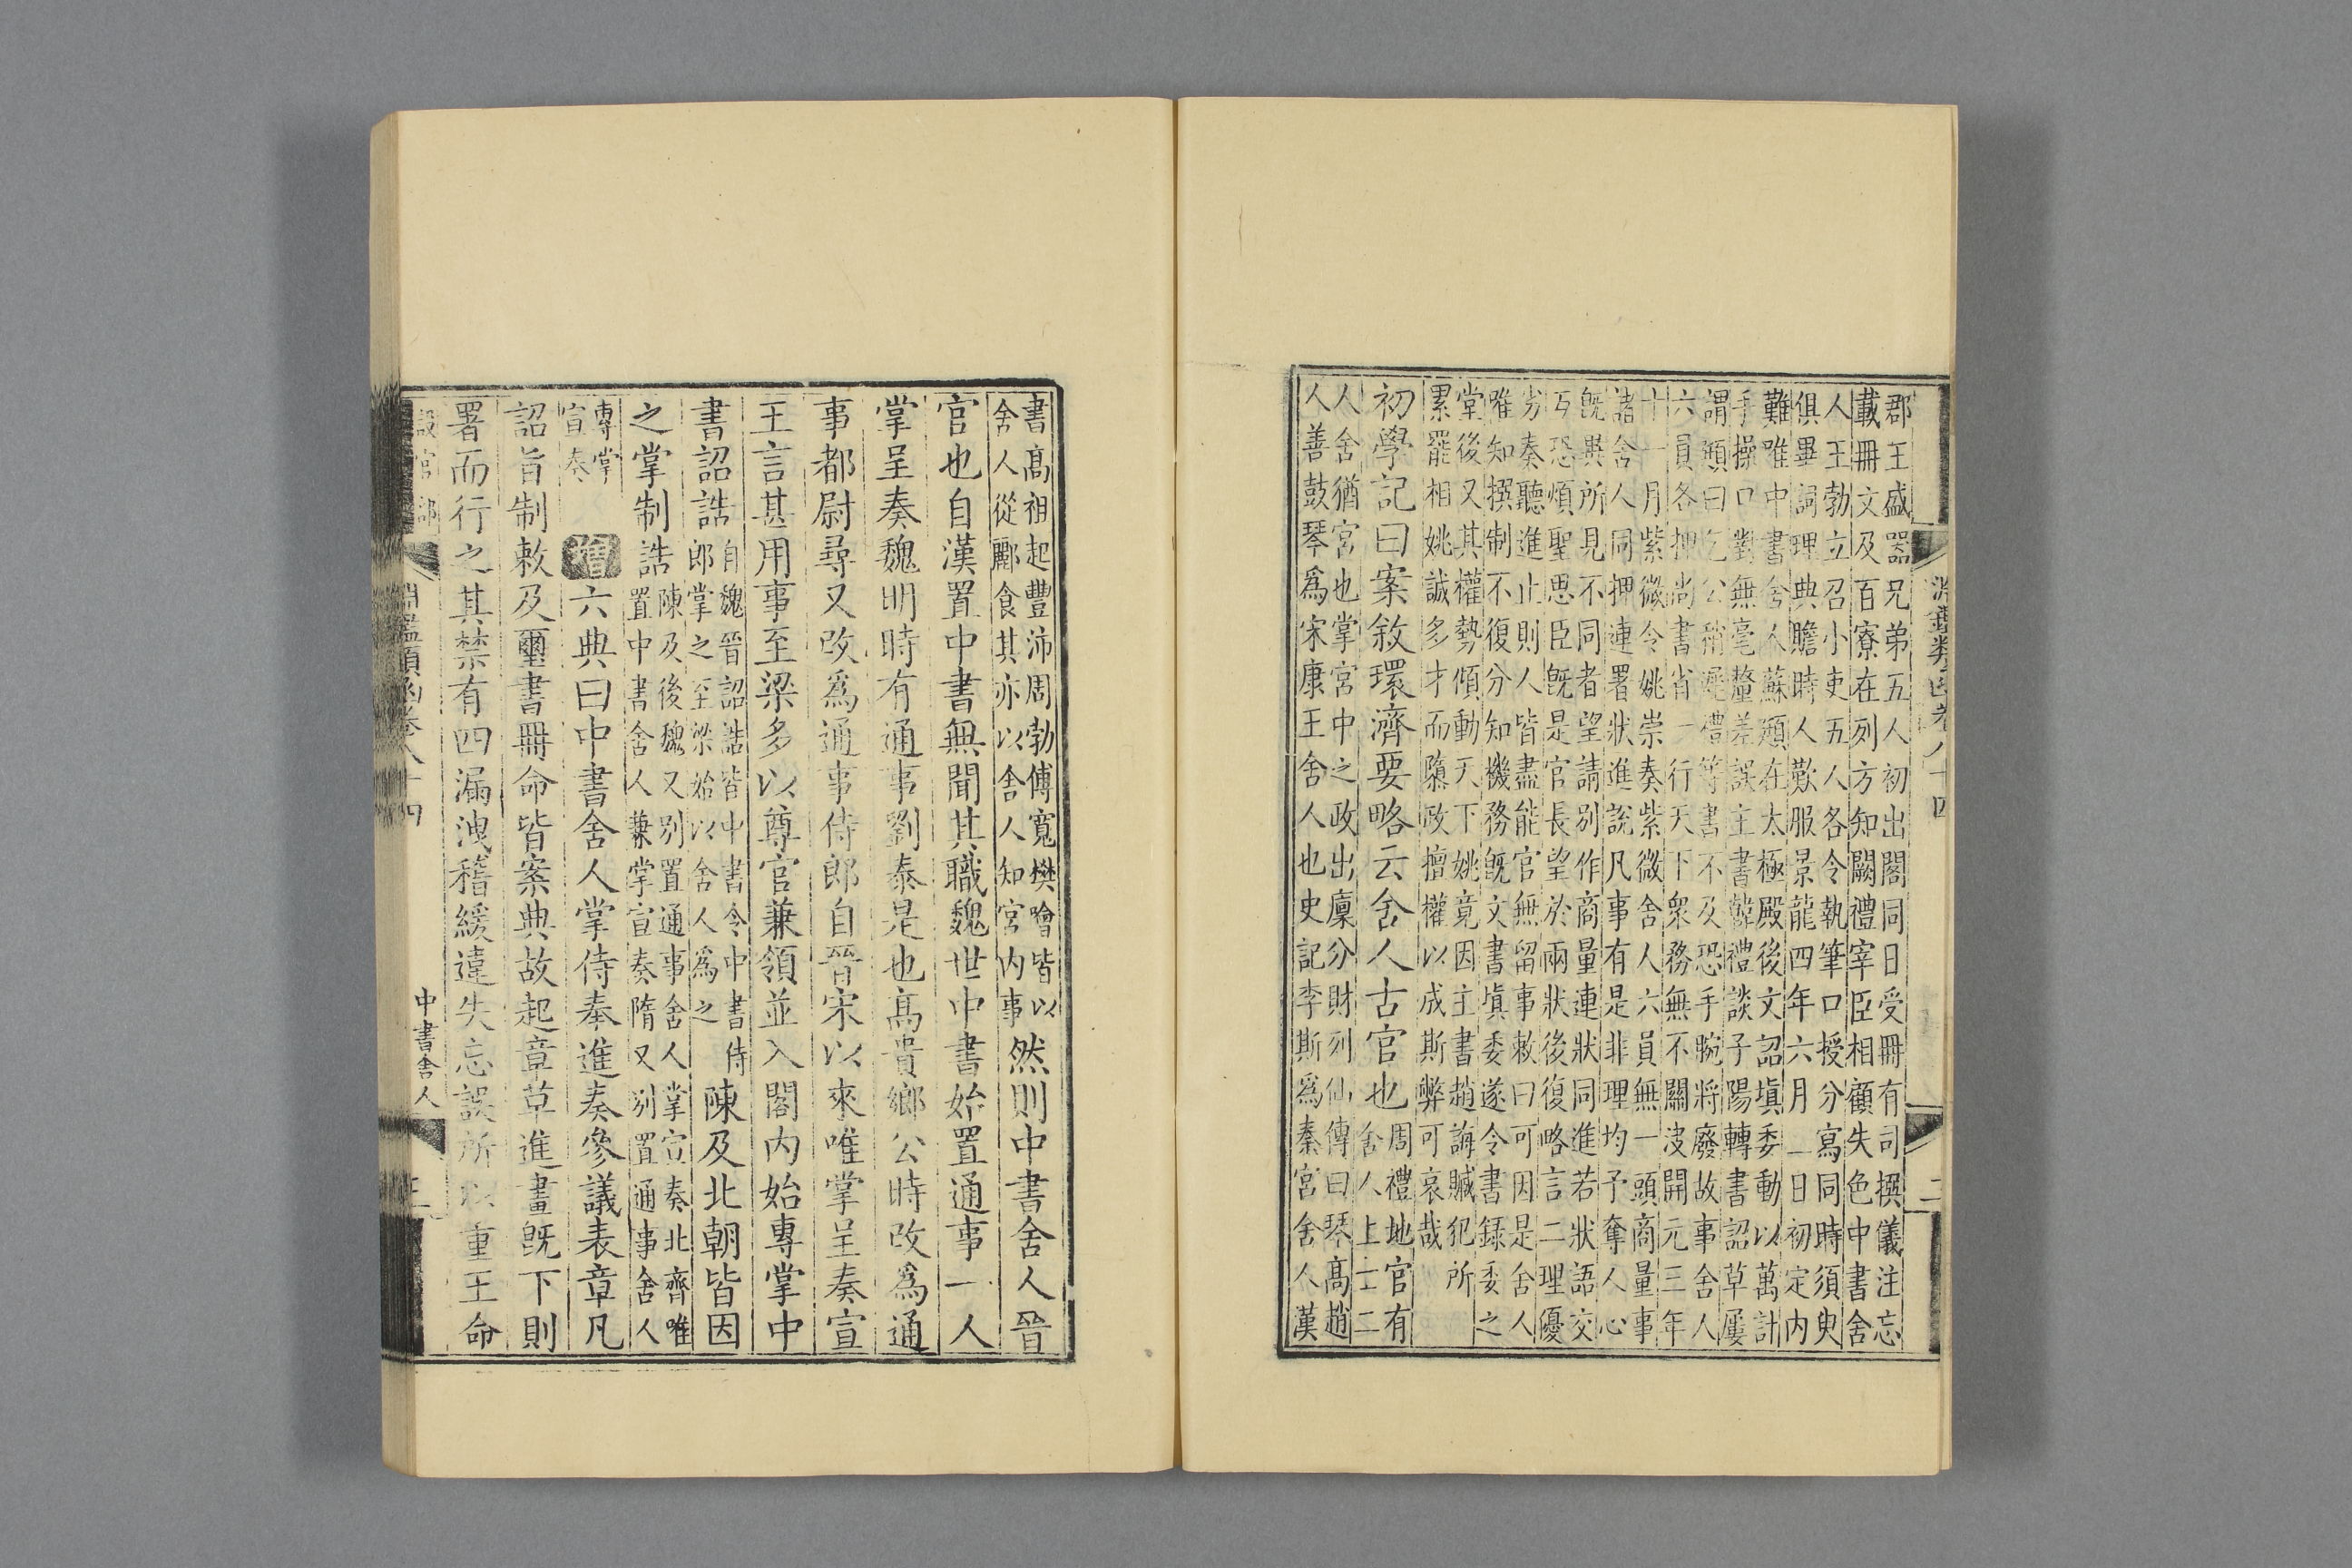 淵鑑類函卷八十四
二
郡王盛器兄弟五人初出閣同日受冊有司撰儀注忘
載冊文及百寮在列方知闕禮宰臣相顧失色中書舍
人王勃立召小吏五人各令執筆口授分寫同時須臾
俱畢詞理典贍時人歎服景龍四年六月二日初定內
難唯中書舍人蘇頲在太極殿後文詔塡委動以萬計
手操口對無毫釐差誤主書韓禮談子陽轉書詔草屢
謂頲曰乞公稍遲禮等書不及恐手腕將廢故事舍人
六員各押尚書省一行天下衆務無不關決開元三年
十一月紫微令姚崇奏紫微舍人六員無一頭商量事
諸舍人同押連署狀進說凡事有是非理均予奪人心
旣異所見不同者望請別作商量連狀同進若狀語交
互恐煩聖思臣旣是官長望於兩狀後復略言二理優
劣奏聽進止則人皆盡能官無留事敕曰可因是舍人
唯知撰制不復分知機務旣文書塡委遂令書錄委之
堂後又其權勢傾動天下姚竟因主書趙誨贓犯所
累罷相姚誠多才而隳政擅權以成斯弊可哀哉
初學記曰案敘環濟要略云舍人古官也
周禮地官有
舍人上士二
人舍猶宮也掌宮中之政出廩分財列仙傳曰琴高趙
人善鼓琴爲宋康王舍人也史記李斯爲秦宮舍人漢
書高祖起豐沛周勃傅寬樊噲皆以
舍人從酈食其亦以舍人知宮內事
然則中書舍人晉
官也自漢置中書無聞其職魏世中書始置通事一人
掌呈奏魏明時有通事劉泰是也高貴鄉公時改爲通
事都尉尋又改爲通事侍郎自晉宋以來唯掌呈奏宣
王言甚用事至梁多以尊官兼領並入閣內始專掌中
書詔誥
自魏晉詔誥皆中書令中書侍
郎掌之至梁始以舍人爲之
陳及北朝皆因
之掌制誥
陳及後魏又別置通事舍人掌宣奏北齊唯
置中書舍人兼掌宣奏隋又別置通事舍人
專掌
宣奏
增六典曰中書舍人掌侍奉進奏參議表章凡
詔旨制敕及璽書冊命皆案典故起章草進畫旣下則
署而行之其禁有四漏洩稽緩違失忘誤所以重王命
設官部
淵鑑類函卷八十四
中書舍人
三